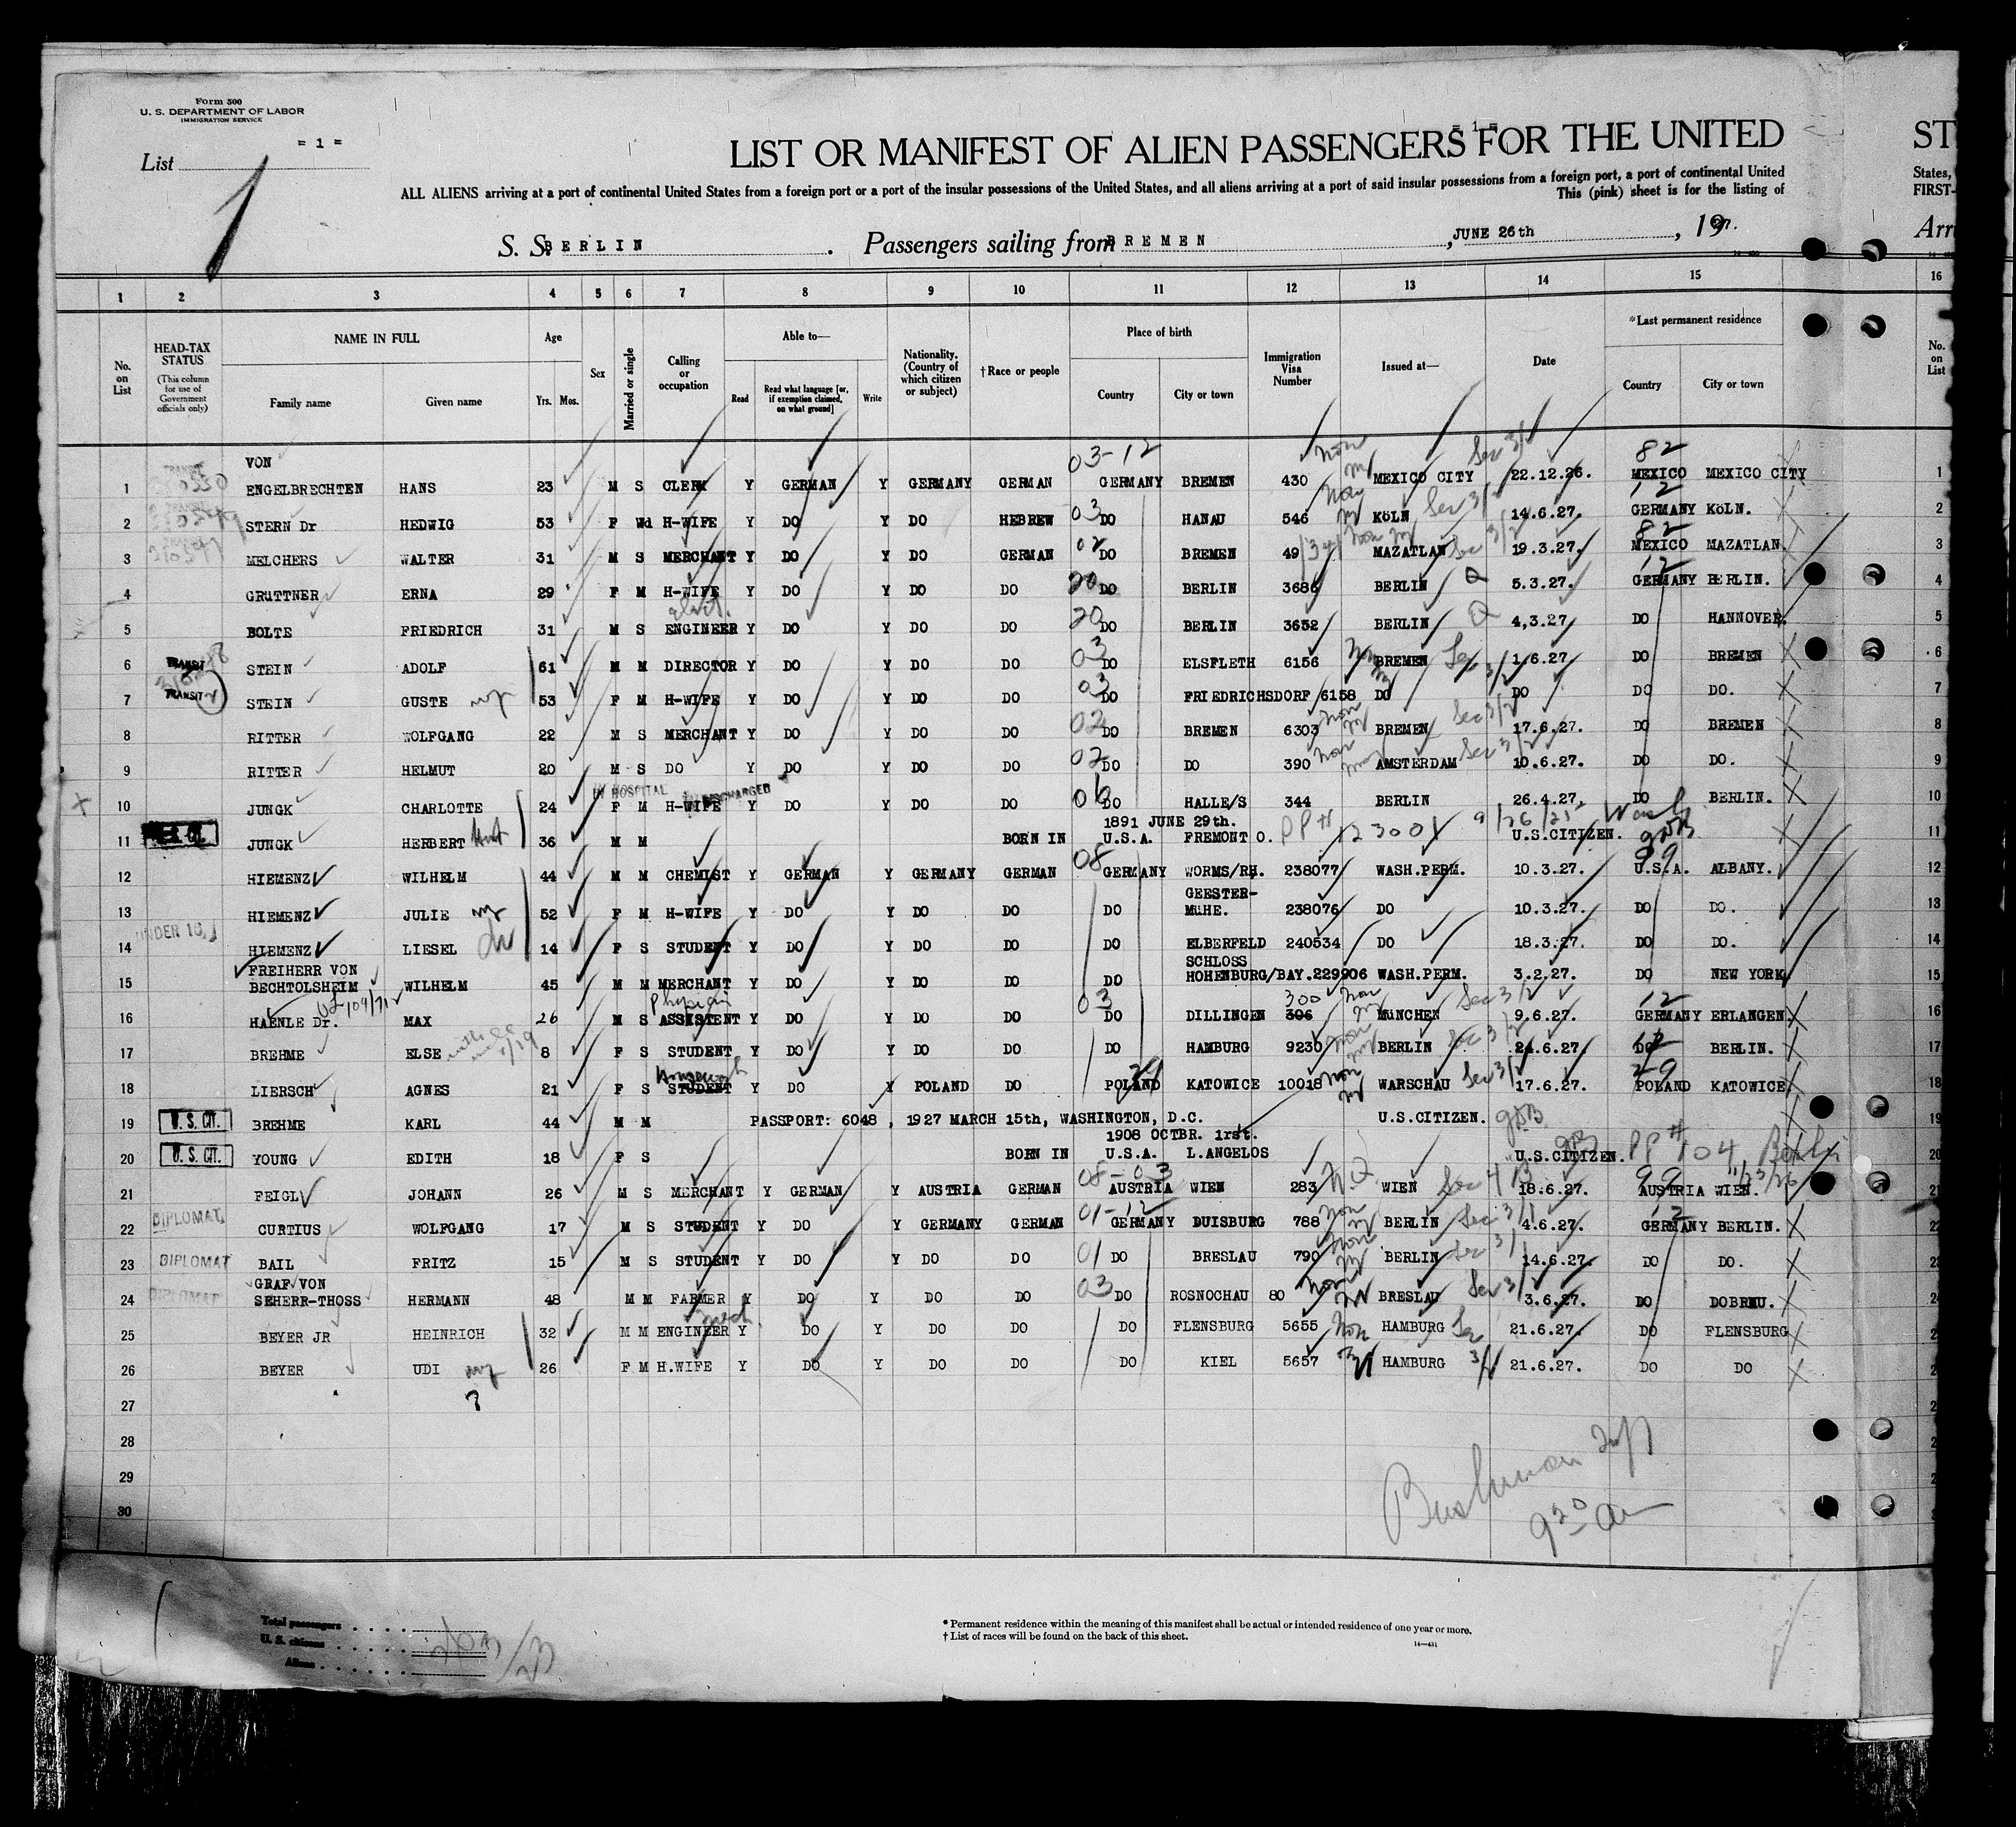 Form 500
U. S. DEPARTMENT OF LABOR
IMMIGRATION SERVICE
= 1 =
List
1
= 1 =
LIST OR MANIFEST OF ALIEN PASSENGERS FOR THE UNITED
ST
ALL ALIENS arriving at a port of continental United States from a foreign port or a port of the insular possessions of the United States, and all aliens arriving at a port of said insular possessions from a foreign port, a port of continental United
States,
This (pink) sheet is for the listing of
FIRST-
S. S. BERLIN . Passengers sailing from BREMEN , JUNE 26th , 1927.
Arri
1 2 3 4 5 6 7 8 9 10 11 12 13 14 15 16
No. on List
HEAD-TAX STATUS
(This column for use of Government officials only)
NAME IN FULL
Family name Given name
Age
Yrs. Mos.
Sex
Married or single
Calling or occupation
Able to—
Read
Read what language [or, if exemption claimed, on what ground]
Write
Nationality. (Country of which citizen or subject)
† Race or people
Place of birth
Country City or town
Immigration Visa Number
Issued at—
Date
*Last permanent residence
Country City or town
No. on List
03-12 82
1 VON ENGELBRECHTEN HANS 23 M S CLERK Y GERMAN Y GERMANY GERMAN GERMANY BREMEN 430 MEXICO CITY 22.12.26. MEXICO MEXICO CITY 1
2 STERN Dr HEDWIG 53 F Wd H-WIFE Y DO Y DO HEBREW 03 DO HANAU 546 KöLN Sec 3/2 14.6.27. 12 GERMANY KöLN. 2
3 MELCHERS WALTER 31 M S MERCHANT Y DO Y DO GERMAN 02 DO BREMEN 49 MAZATLAN Sec 3/2 19.3.27. 82 MEXICO MAZATLAN. 3
4 GRüTTNER ERNA 29 F M H-WIFE Y DO Y DO DO 20 DO BERLIN 3686 BERLIN Q 5.3.27. 12 GERMANY BERLIN. 4
5 BOLTE FRIEDRICH 31 M S ENGINEER Y DO Y DO DO 20 DO BERLIN 3652 BERLIN Q 4,3.27 DO HANNOVER. 5
6 TRANSIT STEIN ADOLF 61 M M DIRECTOR Y DO Y DO DO 03 DO ELSFLETH 6156 BREMEN 1.6.27. DO BREMEN 6
7 TRANSIT STEIN GUSTE 53 F M H-WIFE Y DO Y DO DO 03 DO FRIEDRICHSDORF 6158 DO DO DO DO. 7
8 RITTER WOLFGANG 22 M S MERCHANT Y DO Y DO DO 02 DO BREMEN 6303 BREMEN Sec 3/2 17.6.27. DO BREMEN 8
9 RITTER HELMUT 20 M S DO Y DO Y DO DO 02 DO DO 390 AMSTERDAM Sec 3/2 10.6.27. DO DO. 9
IN HOSPITAL DISCHARGED
10 JUNGK CHARLOTTE 24 F M H-WIFE Y DO Y DO DO 06 DO HALLE/S 344 BERLIN 26.4.27. DO BERLIN. 10
1891 JUNE 29th.
11 JUNGK HERBERT 36 M M BORN IN U.S.A. FREMONT O. PP # 9/26/25 U.S.CITIZEN. 11
12 HIEMENZ WILHELM 44 M M CHEMIST Y GERMAN Y GERMANY GERMAN 08 GERMANY WORMS/RH. 238077 WASH.PERM. 10.3.27. 99 U.S.A. ALBANY. 12
13 HIEMENZ JULIE 52 F M H-WIFE Y DO Y DO DO DO GEESTER-MüHE. 238076 DO 10.3.27. DO DO. 13
14 UNDER 16 HIEMENZ LIESEL 14 F S STUDENT Y DO Y DO DO DO ELBERFELD 240534 DO 18.3.27. DO DO. 14
15 FREIHERR VON BECHTOLSHEIM WILHELM 45 M M MERCHANT Y DO Y DO DO DO SCHLOSS HOHENBURG/BAY. 229906 WASH.PERM. 3.2.27. DO NEW YORK 15
16 HAENLE Dr. MAX 26 M S ASSISTENT Y DO Y DO DO 03 DO DILLINGEN 306 300 MüNCHEN 9.6.27. 12 GERMANY ERLANGEN 16
17 BREHME ELSE 8 F S STUDENT Y DO Y DO DO DO HAMBURG 9230 BERLIN Sec 3/2 24.6.27. DO BERLIN. 17
18 LIERSCH AGNES 21 F S STUDENT Y DO Y POLAND DO POLAND KATOWICE 10018 WARSCHAU Sec 3/2 17.6.27. POLAND KATOWICE 18
19 U. S. CIT. BREHME KARL 44 M M PASSPORT: 6048 , 1927 MARCH 15th, WASHINGTON, D.C. U.S.CITIZEN. 19
1908 OCTBR. 1rst.
20 U. S. CIT. YOUNG EDITH 18 F S BORN IN U.S.A. L.ANGELOS U.S.CITIZEN. PP # 104 20
21 FEIGL JOHANN 26 M S MERCHANT Y GERMAN Y AUSTRIA GERMAN 08-03 AUSTRIA WIEN 283 WIEN Sec 4 B 18.6.27. 99 AUSTRIA WIEN. 21
22 DIPLOMAT. CURTIUS WOLFGANG 17 M S STUDENT Y DO Y GERMANY GERMAN 01-12 GERMANY DUISBURG 788 BERLIN Sec 3/1 4.6.27. 12 GERMANY BERLIN. 22
23 DIPLOMAT BAIL FRITZ 15 M S STUDENT Y DO Y DO DO 01 DO BRESLAU 790 BERLIN Sec 3/1 14.6.27. DO DO. 23
24 DIPLOMAT GRAF VON SEHERR-THOSS HERMANN 48 M M FARMER Y DO Y DO DO 03 DO ROSNOCHAU 80 BRESLAU 3.6.27. DO DOBRAU. 24
25 BEYER JR HEINRICH 32 M M ENGINEER Y DO Y DO DO DO FLENSBURG 5655 HAMBURG 21.6.27. DO FLENSBURG
26 BEYER UDI 26 F M H.WIFE Y DO Y DO DO DO KIEL 5657 HAMBURG 21.6.27. DO DO
27
28
29
30
Total passengers
U. S. citizens
Aliens
* Permanent residence within the meaning of this manifest shall be actual or intended residence of one year or more.
† List of races will be found on the back of this sheet.
14—431